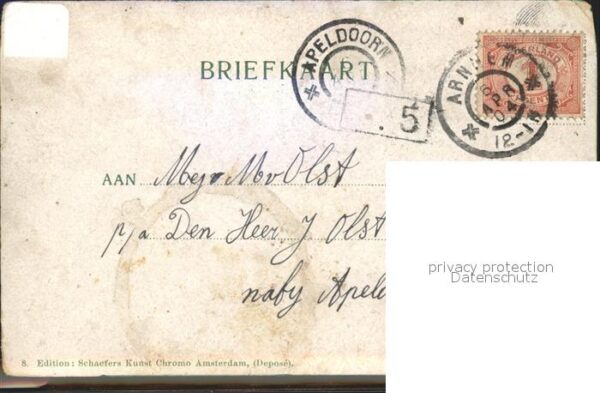 APELDOORN
BRIEFKAART
ARNHEM
5 APR 04
12-1N
5
AAN Mejv MvOlst
p/a Den Heer J Olst
naby Apeld
privacy protection
Datenschutz
8. Edition: Schaefers Kunst Chromo Amsterdam, (Deposé).